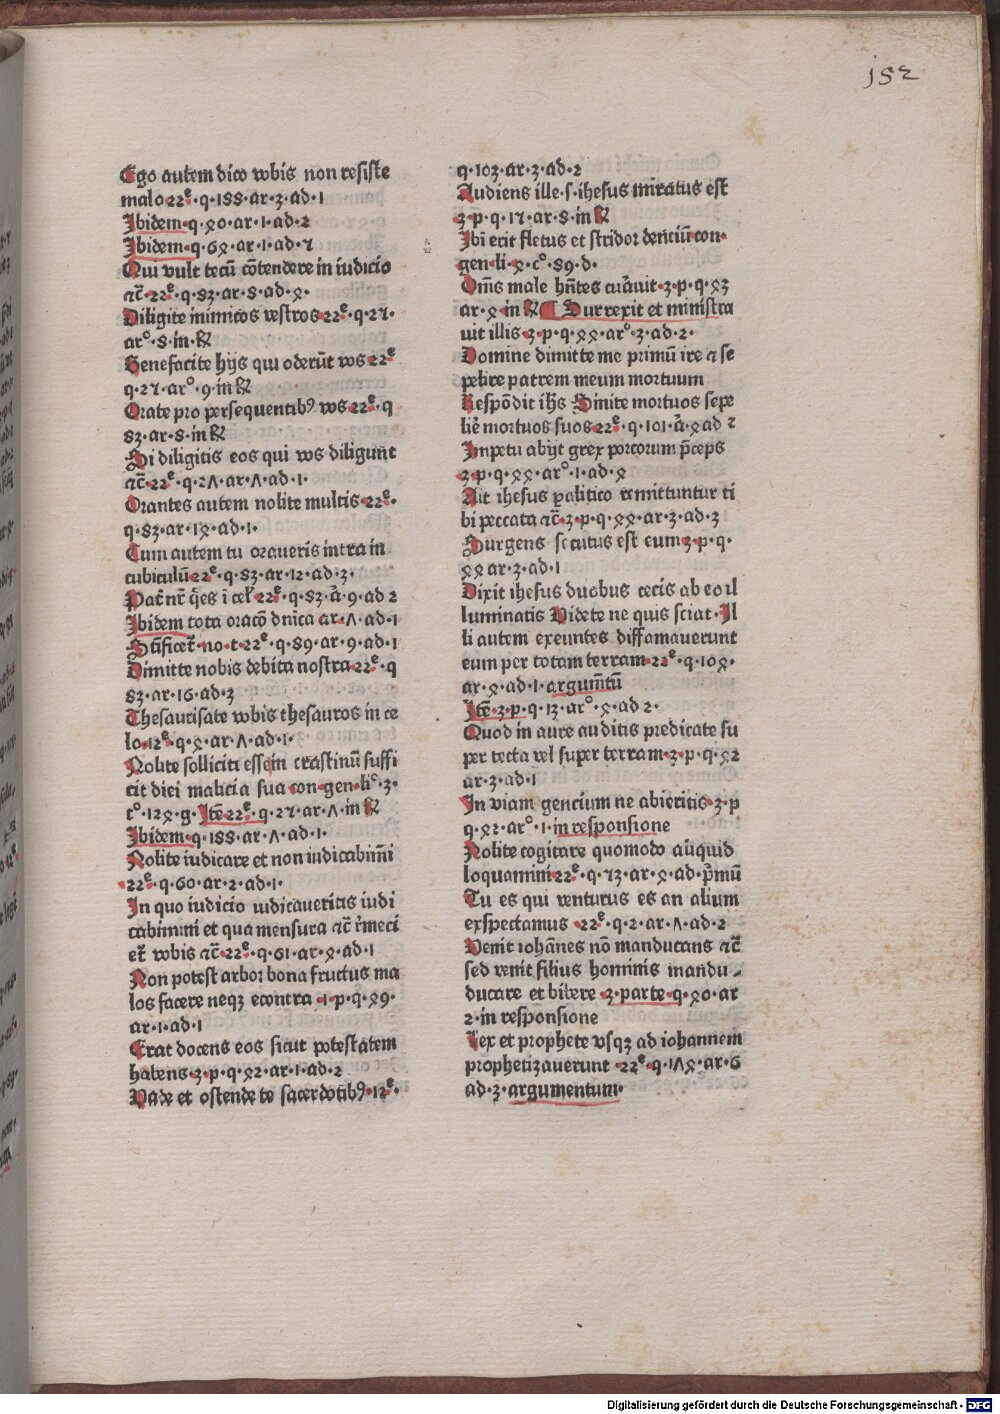 152
Ego autem dico vobis non resiste
malo·22ᵉ·q·188·ar·3·ad·1
Ibidem·q·40·ar·1·ad·2
Ibidem·q·64·ar·1·ad·7
Qui vult tecū cōtendere in iudicio
⁊c̄·22ᵉ·q·83·ar·8·ad·4·
Diligite inimicos vestros·22ᵉ·q·27·
arᵒ·8·in·℞
Benefacite hijs qui oderūt vos·22ᵉ
q·27·arᵒ·9·in ℞
Orate pro persequentibꝰ vos·22ᵉ·q
83·ar·8·in ℞
Si diligitis eos qui vos diligunt
⁊c̄·22ᵉ·q·25·ar·5·ad·1·
Orantes autem nolite multis·22ᵉ·
q·83·ar·14·ad·1·
Cum autem tu oraueris intra in
cubiculū·22ᵉ·q·83·ar·12·ad·3·
Pat̄ nr̄ q̄es ī cel̄·22ᵉ·q·83·ā·9·ad 2
Ibidem tota oracō dnica ar·5·ad·1
Sc̄ificet᷑·no·t·22ᵉ·q·89·ar·9·ad·1
Dimitte nobis debita nostra·22ᵉ·q
83·ar·16·ad·3
Thesaurisate vobis thesauros in ce
lo·12ᵉ·q·4·ar·5·ad·1·
Nolite solliciti essein crastinū suffi
cit diei malicia sua con·gen·liᵒ·3·
cᵒ·124·g·Itē·22ᵉ·q·27·ar·5·in ℞
Ibidem·q·188·ar·5·ad·1·
Nolite iudicare et non iudicabim̄i
22ᵉ·q·60·ar·2·ad·1·
In quo iudicio iudicaueritis iudi
cabimini et qua mensura ⁊c̄ r̄meci
et᷑ vobis ⁊c̄·22ᵉ·q·61·ar·4·ad·1
Non potest arbor bona fructus ma
los facere neqꝫ econtra·1·p·q·49·
ar·1·ad·1
Erat docens eos sicut potestatem
habens·3·p·q·42·ar·1·ad·2
Vade et ostende te sacerdotibꝰ·12ᵉ·
q·103·ar·3·ad·2
Audiens ille·s·ihesus miratus est
3·p·q·17·ar·8·in ℞
Ibi erit fletus et stridor denciū·con·
gen·li·4·cᵒ·89·d·
Om̄s male hn̄tes cuāuit·3·p·q·43
ar·4·in ℞ ¶ Surrexit et ministra
uit illis·3·p·q·44·arᵒ·3·ad·2·
Domine dimitte me primū ire ⁊ se
pelire patrem meum mortuum
Respōdit ihs Sinite mortuos sepe
lie᷑ mortuos suos·22ᵉ·q·101·ā·4·ad 2
Impetu abijt grex porcorum p̄ceps
3·p·q·44·arᵒ·1·ad·4
Ait ihesus ꝑalitico remittuntur ti
bi peccata ⁊c̄·3·p·q·44·ar·3·ad·3
Surgens secutus est eum·3·p·q·
44·ar·3·ad·1
Dixit ihesus duobus cecis ab eo il
luminatis Videte ne quis sciat·Il
li autem exeuntes diffamauerunt
eum per totam terram·22ᵉ·q·104·
ar·4·ad·1·argumētū
Itē·3·p·q·13·arᵒ·4·ad 2·
Quod in aure auditis predicate su
per tecta vel super terram·3·p·q·42
ar·3·ad·1
In viam gencium ne abieritis·3·p
q·42·arᵒ·1·in responsione
Nolite cogitare quomodo aūquid
loquamini·22ᵉ·q·73·ar·4·ad·p̄mū
Tu es qui venturus es an alium
exspectamus·22ᵉ·q·2·ar·5·ad·2
Venit iohānes nō manducans ⁊c̄
sed venit filius hominis mandu-
ducare et bibere·3·parte·q·40·ar
2·in responsione
Lex et prophete vsqꝫ ad iohannem
prophetizauerunt·22ᵉ·q·154·ar·6
ad·3·argumentum·
Digitalisierung gefördert durch die Deutsche Forschungsgemeinschaft - DFG